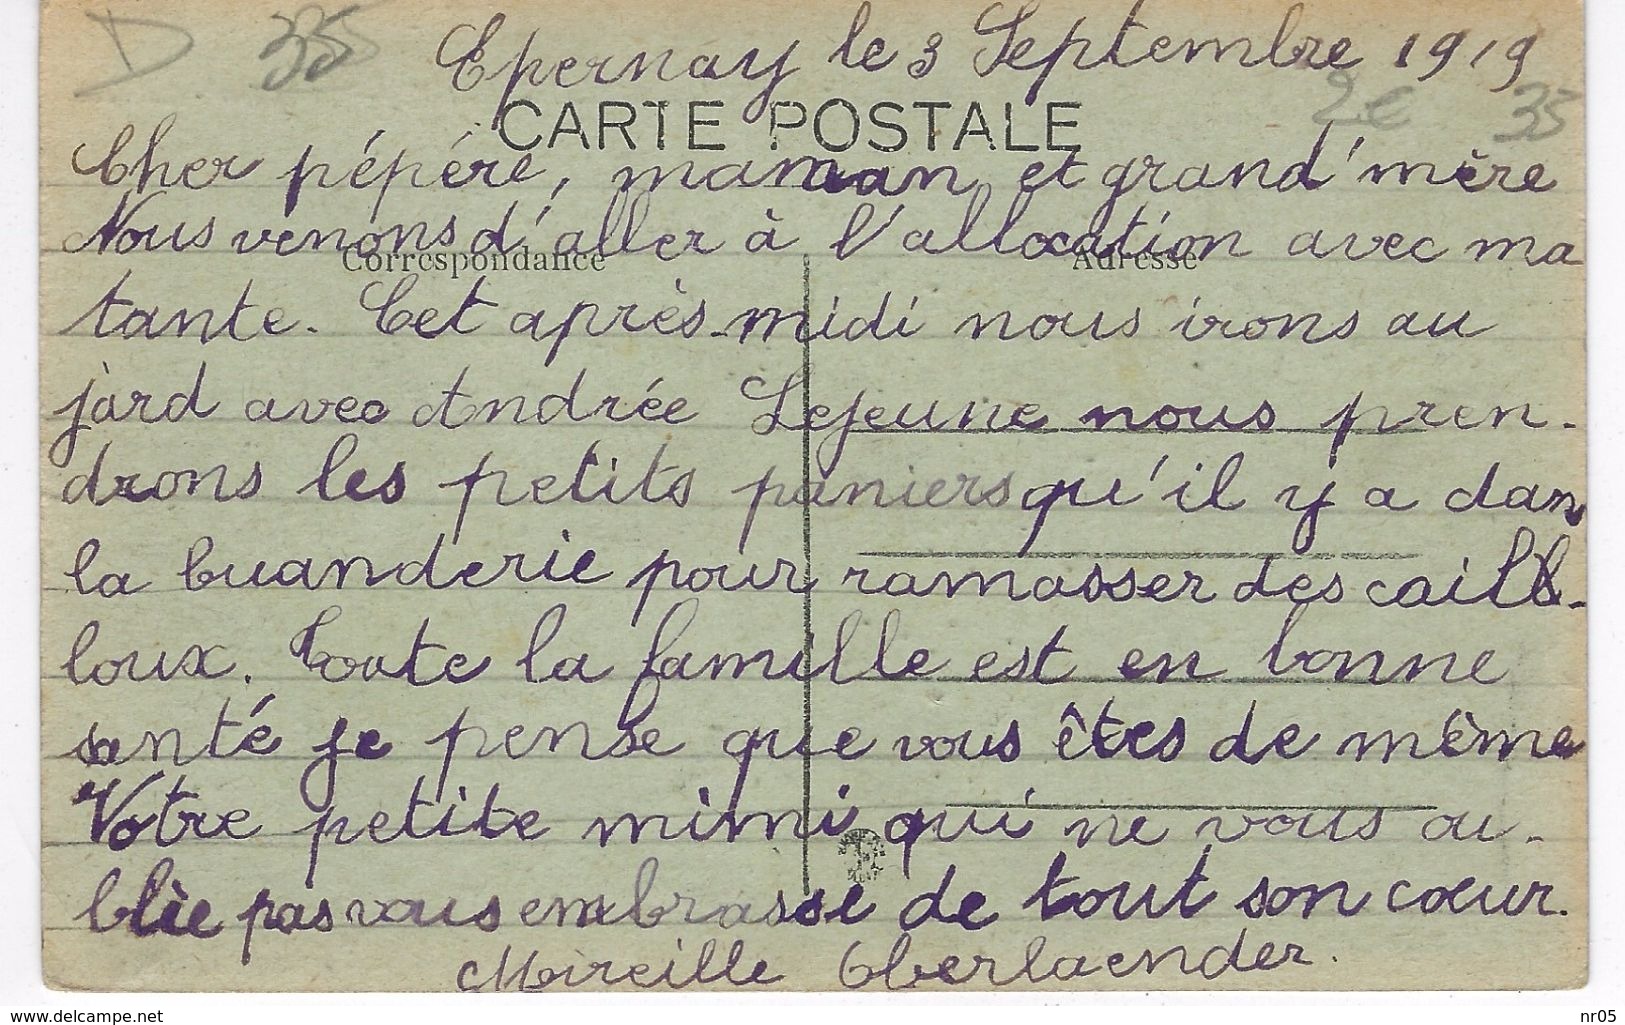 D 335
Epernay le 3 Septembre 1919
2€ 35
CARTE POSTALE
Cher pépére, maman et grand'mère
Nous venons d'aller à l'allocation avec ma
Correspondance Adresse
tante. Cet après-midi nous irons au
jard avec Andrée Lejeune nous pren-
drons les petits paniers qu'il y a dans
la buanderie pour ramasser des cail-
loux. Toute la famille est en bonne
santé je pense que vous êtes de même
Votre petite mimi qui ne vous ou-
blie pas vous embrasse de tout son cœur.
Mireille Oberlaender.
www.delcampe.net nr05